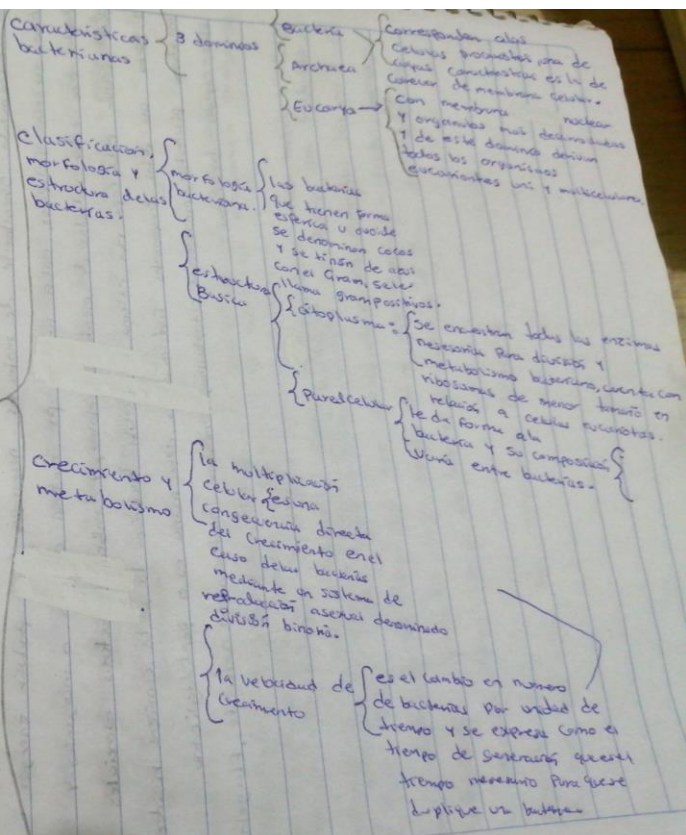 características
bacterianas
3 dominios
Bacteria
Archaea
corresponden a las
celulas procariotas, una de
cuyas características es la de
carecer de membrana celular.
Eucarya →
con membrana nuclear
y organulos mas desarrollados
y de este dominio derivan
todos los organismos
eucariontes uni y multicelulares.
clasificación,
morfología y
estructura de las
bacterias.
morfología
bacteriana.
las bacterias
que tienen forma
esferica u ovoide
se denominan cocos
y se tiñen de azul
con el Gram, se les
llama grampositivos.
estructura
Basica
citoplasma:
se encuentran todas las enzimas
necesarias para division y
metabolismo bacteriano, cuenta con
ribosomas de menor tamaño en
relación a celulas eucariotas.
pared celular
le da forma a la
bacteria y su composición
varia entre bacterias.
crecimiento y
metabolismo
la multiplicación
celular es una
consecuencia directa
del crecimiento en el
caso de las bacterias
mediante un sistema de
asexual denominado
división binaria.
la velocidad de
crecimiento
es el cambio en numero
de bacterias por unidad de
tiempo y se expresa como el
tiempo de generación que es el
tiempo necesario para que se
duplique una bacteria